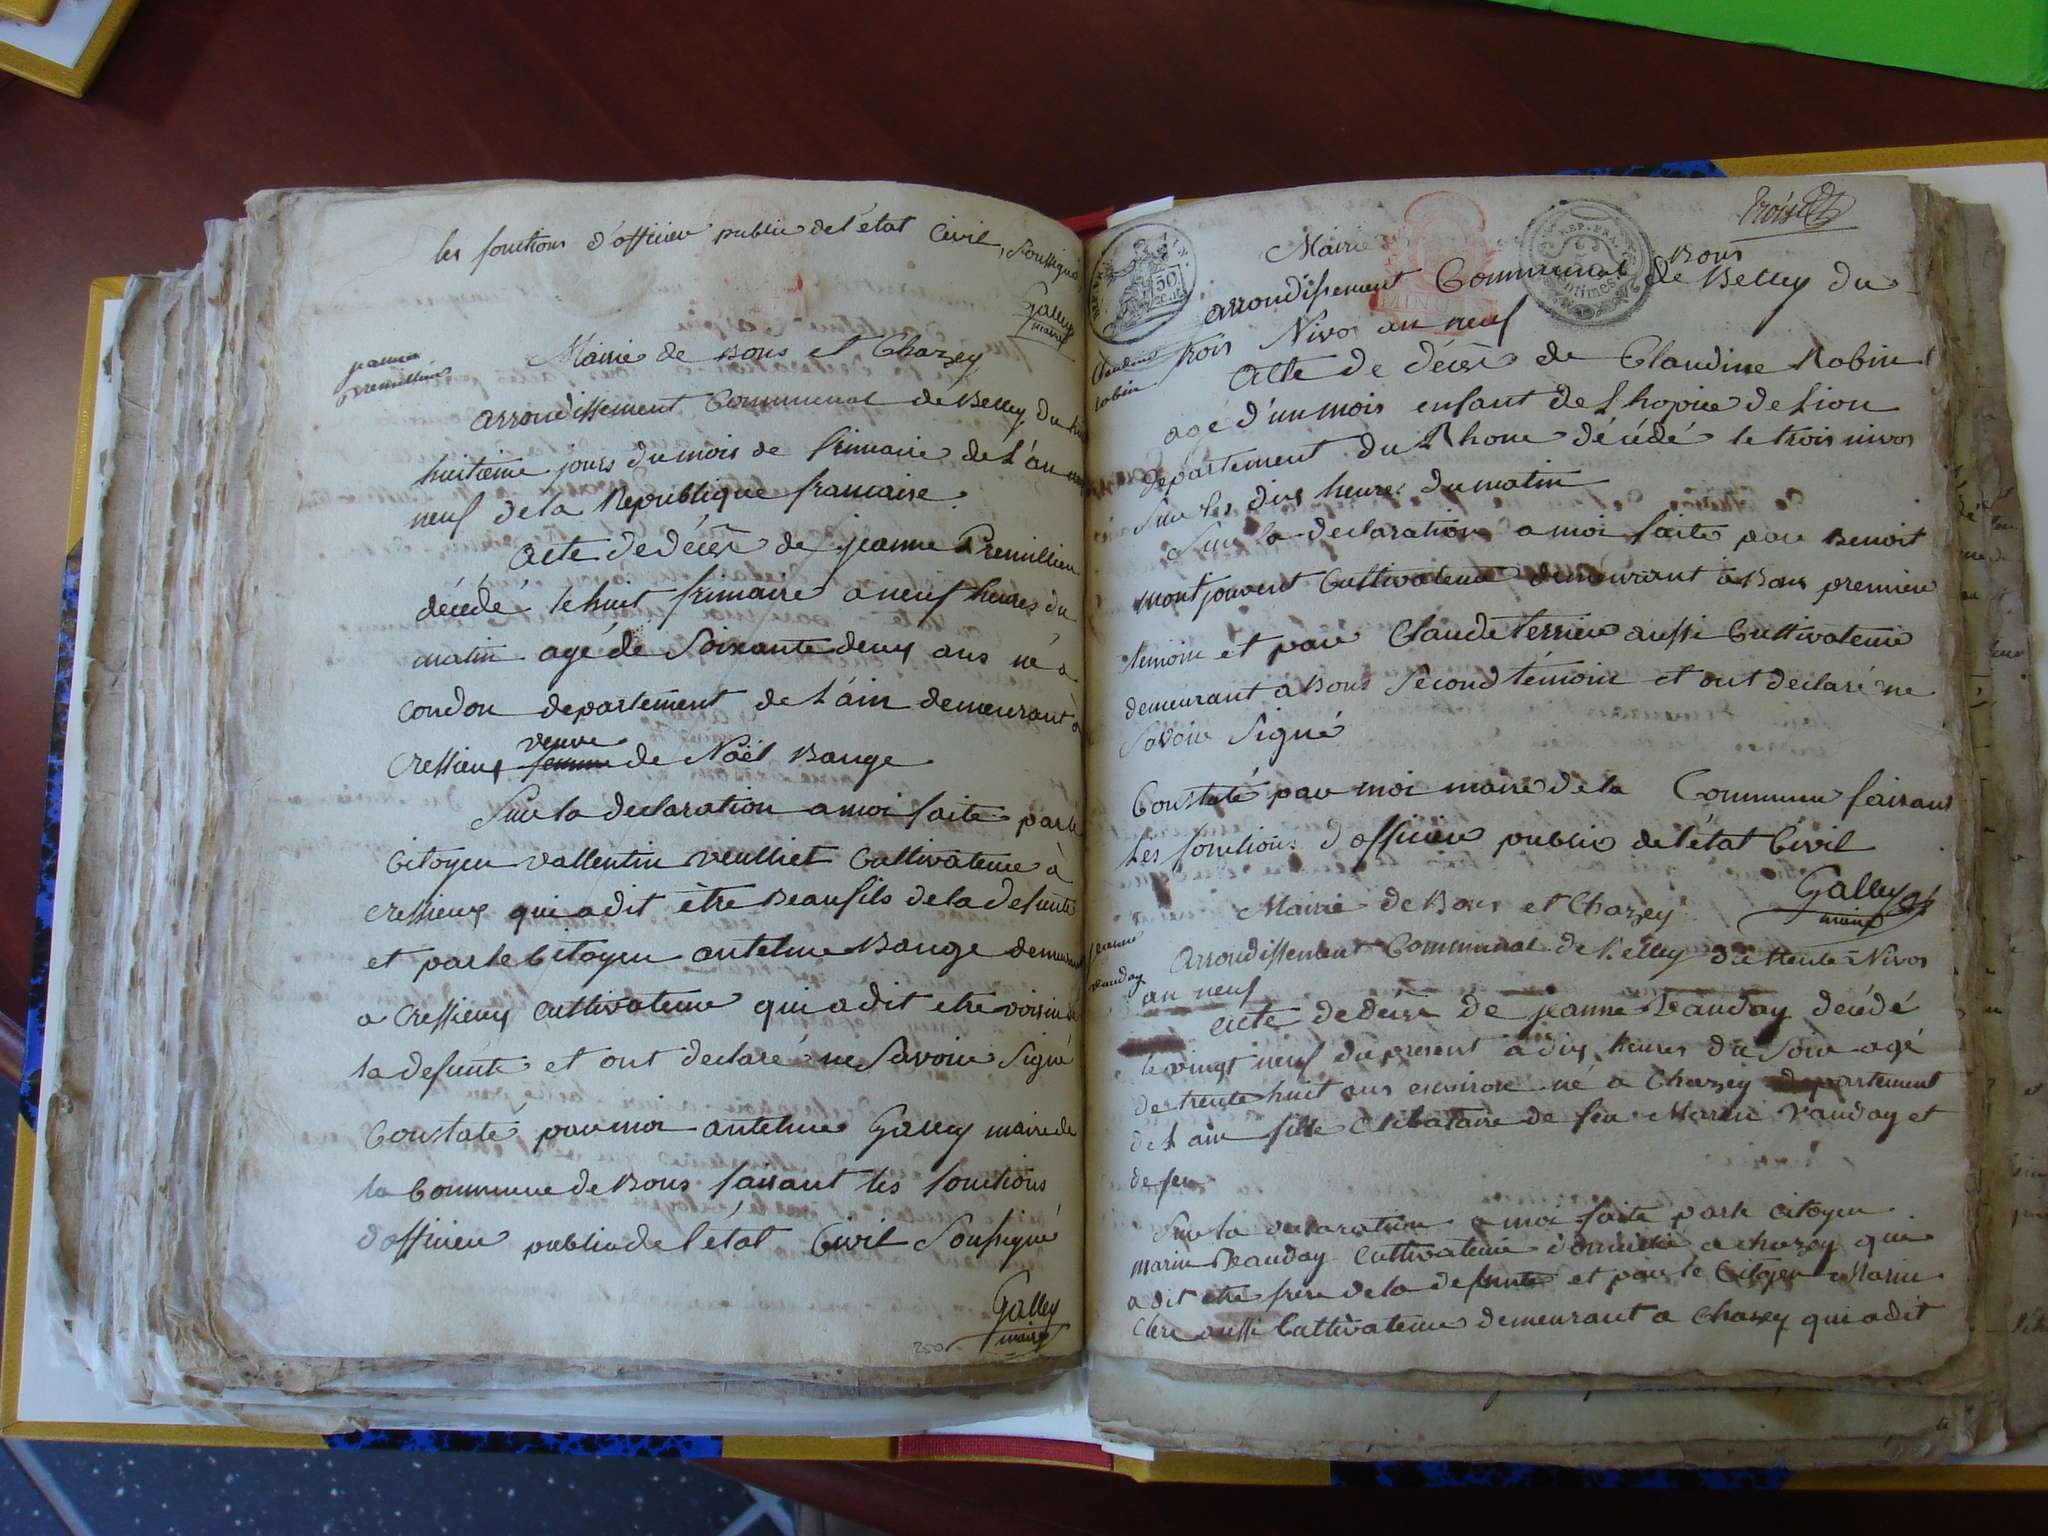 les fonctions d'officier public de l'état Civil, Soussigné
Galley
maire
jeanne
premillieu
Mairie de Bons et Chazey
arrondissement Communal de Belley du
huitieme jours du mois de frimaire de L'an
neuf de la Republique francaise.
acte de décès de jeanne Premillieu
décédé le huit frimaire a neuf heures du
matin agé de Soixante deux ans né a
Condon departement de L'ain demeurant à
veuve
Cressieux femme de Noël Bauge
Sur la declaration a moi faite par le
Citoyen vallentin veulliet Cultivateur à
Cressieux qui a dit être Beaufils de la defunte
et par le Citoyen antelme Bauge demeurant
a Cressieux Cultivateur qui a dit etre voisin de
la defunte et ont declaré ne Savoir Signé
Constaté par moi antelme Galley maire de
la Commune de Bons faisant les fonctions
d'officier public de l'état Civil Soussigné
Galley
maire
250
Mairie Bons
REP. FRA.
50
centimes
arrondissement Communal de Belley du
trois Nivos an neuf
Claudine
robin
acte de décès de Claudine Robin
agé d'un mois enfant de L'hopice de Lion
departement du Rhone décédé le trois nivos
Sur les dix heures du matin
Sur la declaration a moi faite par Benoit
montjouvent Cultivateur demeurant a Bons premier
temoin et par Claude terrier aussi Cultivateur
demeurant a Bons Second témoin et ont declaré ne
Savoir Signé
Constaté par moi maire de la Commune faisant
Les fonctions d'officier public de l'état Civil
Galley
maire
Mairie de Bons et Chazey
jeanne
vauday
Arrondissement Communal de Belley du trente Nivos
an neuf
acte de décès de jeanne Vauday décédé
le vingt neuf du present à dix heures du Soir agé
de trente huit ans environ né a Chazey departement
de L'ain fille Celibataire de feu Marin Vauday et
de feu
Sur la declaration a moi faite par le citoyen
marin Vauday Cultivateur domicilié a chazey qui
a dit etre frere de la defunte et par le Citoyen Marin
Clerc aussi Cultivateur demeurant a Chazey qui a dit